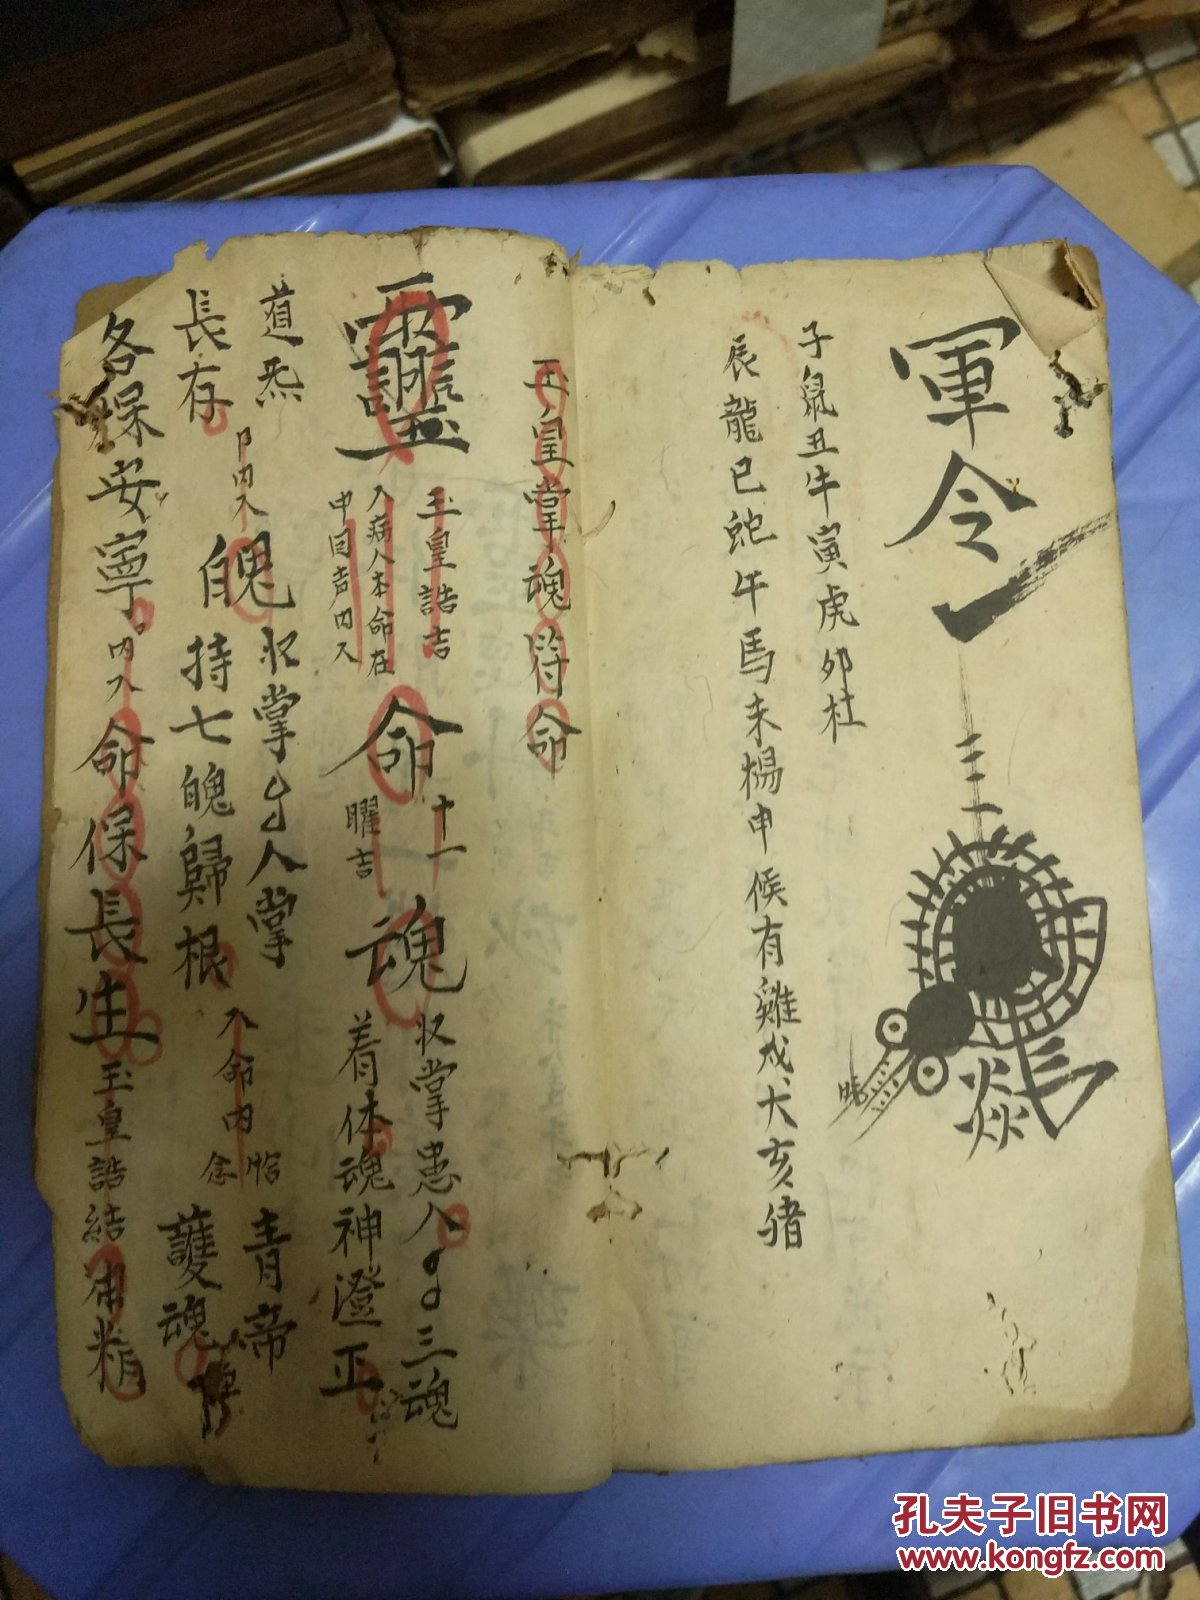 軍令
三
焱
子鼠丑牛寅虎夘杜
辰龍巳蛇午馬未楊申候有雞戍犬亥猪
玉皇掌魂符命
靈
玉皇誥吉
入病人本命在
中国声内入
命
十一
曜吉
魂
收掌患人
三魂
着体魂神澄正
道炁
長存
内入
魄
收掌
人掌
持七魄歸根
入命内
青帝
護魂
各保安寧
内入
命保長生
玉皇誥結
精
孔夫子旧书网
www.kongfz.com